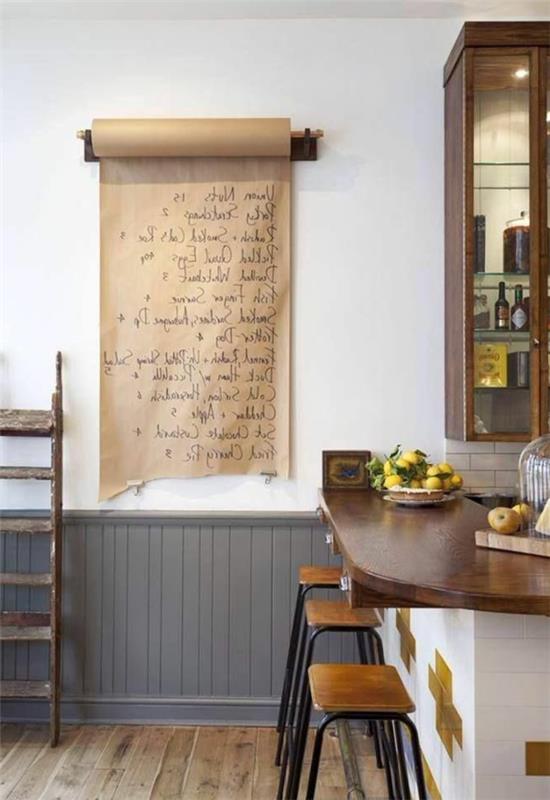 Union Nuts 15
Pork Scratchings 2
Radish + Smoked Cod's Roe 3
Pickled Quail Eggs 90p
Devilled Whitebait 3
Fish Finger Sarnie 4
Smoked Sardines, Aubergine Dip 4
Hotter Dog 4
Fennel Radish + Ur Potted Shrimp Salad 5
Duck Ham w/ Piccalilli 4
Cold Sirloin, Horseradish 6
Cheddar + Apple 5
Set Chocolate Custard 4
Fried Cherry Pie 3